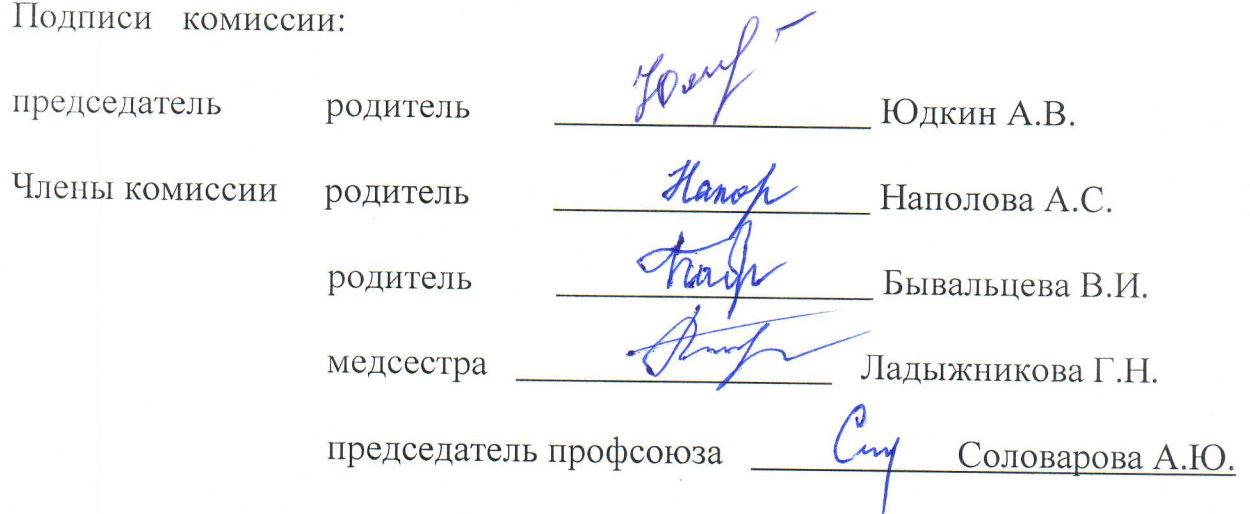 Подписи комиссии:
председатель родитель Юдкин А.В.
Члены комиссии родитель Напор Наполова А.С.
родитель Бывальцева В.И.
медсестра Ладыжникова Г.Н.
председатель профсоюза Соловарова А.Ю.